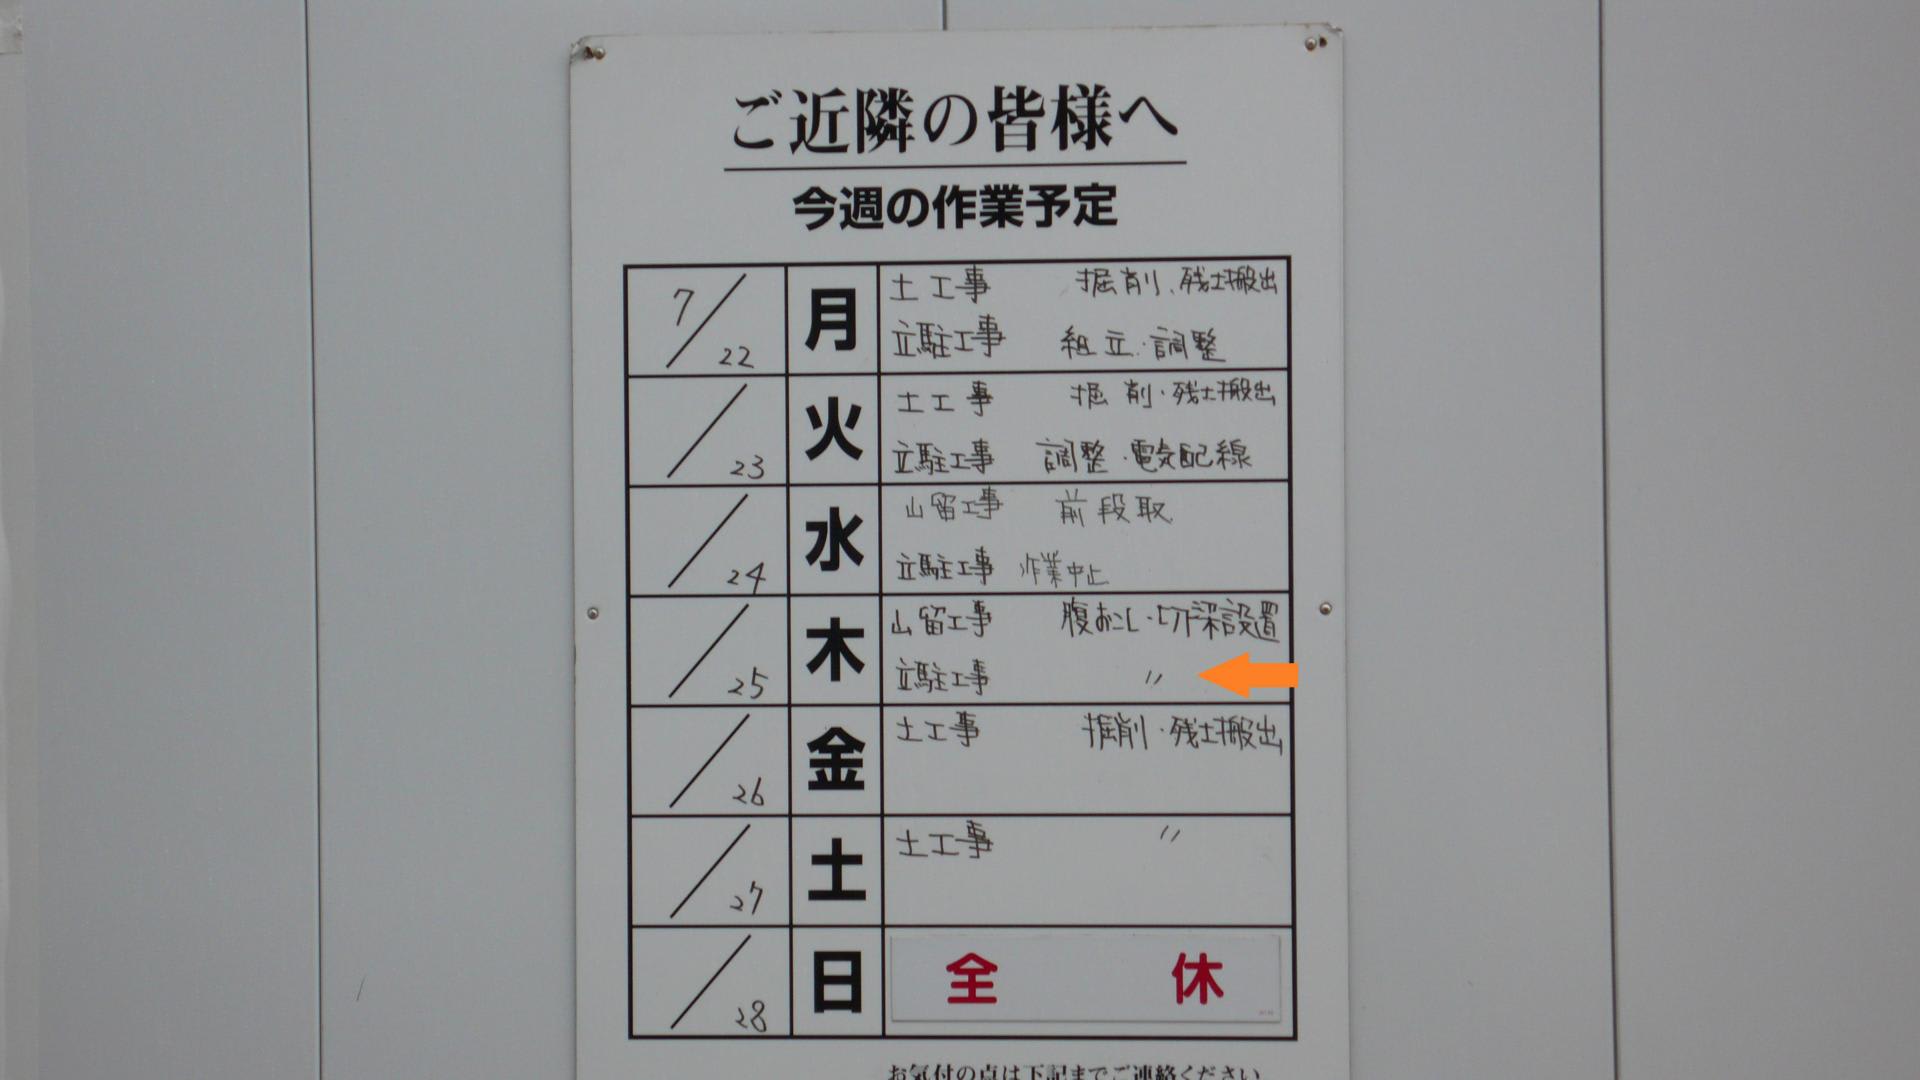 ご近隣の皆様へ
今週の作業予定
7/22 月 土工事 掘削、残土搬出
立駐工事 組立・調整
/23 火 土工事 掘削・残土搬出
立駐工事 調整・電気配線
/24 水 山留工事 前段取
立駐工事 作業中止
/25 木 山留工事 腹おこし・切梁設置
立駐工事 〃
/26 金 土工事 掘削・残土搬出
/27 土 土工事 〃
/28 日 全休
お気付の点は下記までご連絡ください